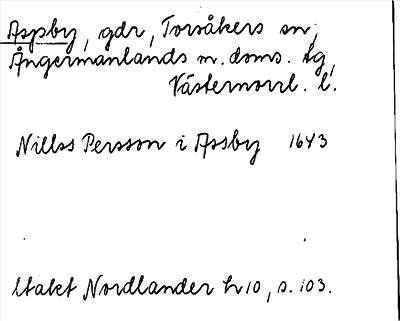 Aspby, gdr, Torsåkers sn,
Ångermanlands m. doms. tg,
Västernorrl. l.
Nillss Persson i Assby 1643
Utakt Nordlander h 10, s. 103.